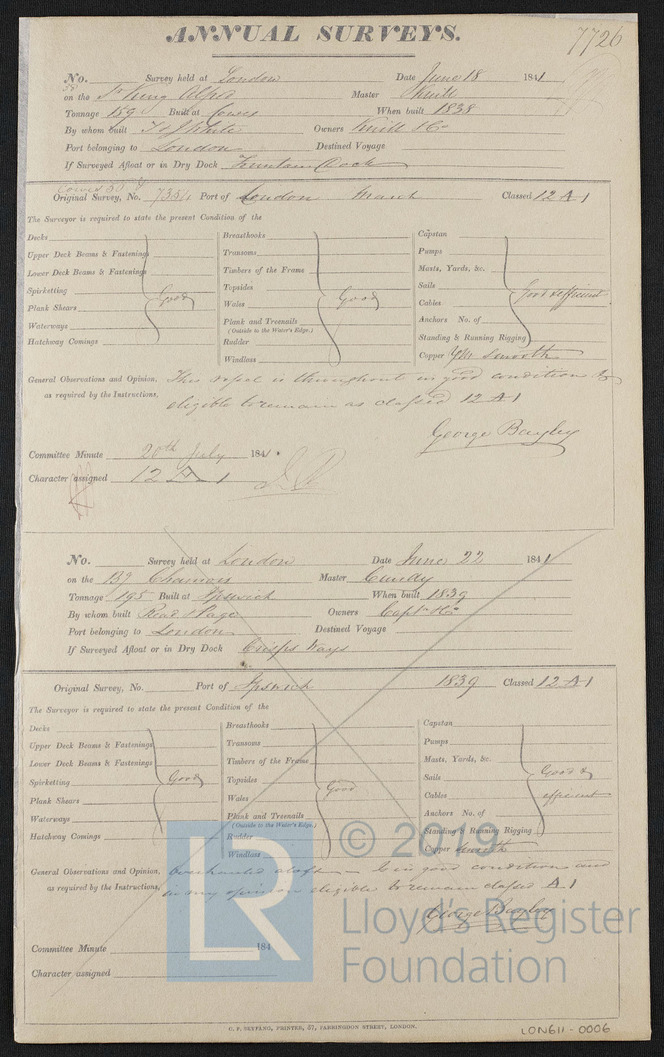 ANNUAL SURVEYS.
7726
No. Survey held at London Date June 18 1841
on the Sr King Alfred Master Knill
Tonnage 159 Built at Cowes When built 1838
By whom built T & J White Owners Knill & Co
Port belonging to London Destined Voyage
If Surveyed Afloat or in Dry Dock Fountain Dock
Original Survey, No. Port of London March Classed 12 A 1
The Surveyor is required to state the present Condition of the
Decks
Upper Deck Beams & Fastenings
Lower Deck Beams & Fastenings
Spirketting Good
Plank Shears
Waterways
Hatchway Comings
Breasthooks
Transoms
Timbers of the Frame
Topsides
Wales Good
Plank and Treenails
(Outside to the Water's Edge.)
Rudder
Windlass
Capstan
Pumps
Masts, Yards, &c.
Sails Good & efficient
Cables
Anchors No. of
Standing & Running Rigging
Copper YM smooth
General Observations and Opinion, This vessel is throughout in good condition &
as required by the Instructions, eligible to remain as classed 12 A 1
George Bayley
Committee Minute 20th July 1841
Character assigned 12 A 1
No. Survey held at London Date June 22 1841
on the Bg Chamois Master
Tonnage 195 Built at Ipswich When built 1839
By whom built Read & Page Owners Capt & Co
Port belonging to London Destined Voyage
If Surveyed Afloat or in Dry Dock Crisps ways
Original Survey, No. Port of Ipswich 1839 Classed 12 A 1
The Surveyor is required to state the present Condition of the
Decks
Upper Deck Beams & Fastenings
Lower Deck Beams & Fastenings
Spirketting Good
Plank Shears
Waterways
Hatchway Comings
Breasthooks
Transoms
Timbers of the Frame
Topsides
Wales Good
Plank and Treenails
(Outside to the Water's Edge.)
Rudder
Windlass
Capstan
Pumps
Masts, Yards, &c.
Sails Good &
Cables efficient
Anchors No. of
Standing & Running Rigging
Copper smooth
General Observations and Opinion, Overhauled aloft is in good condition and
as required by the Instructions, in my opinion eligible to remain classed A 1
George Bayley
Committee Minute 184
Character assigned
C. F. SEYFANG, PRINTER, 57, FARRINGDON STREET, LONDON.
LON611-0006
LR
© 2019
Lloyd's Register
Foundation